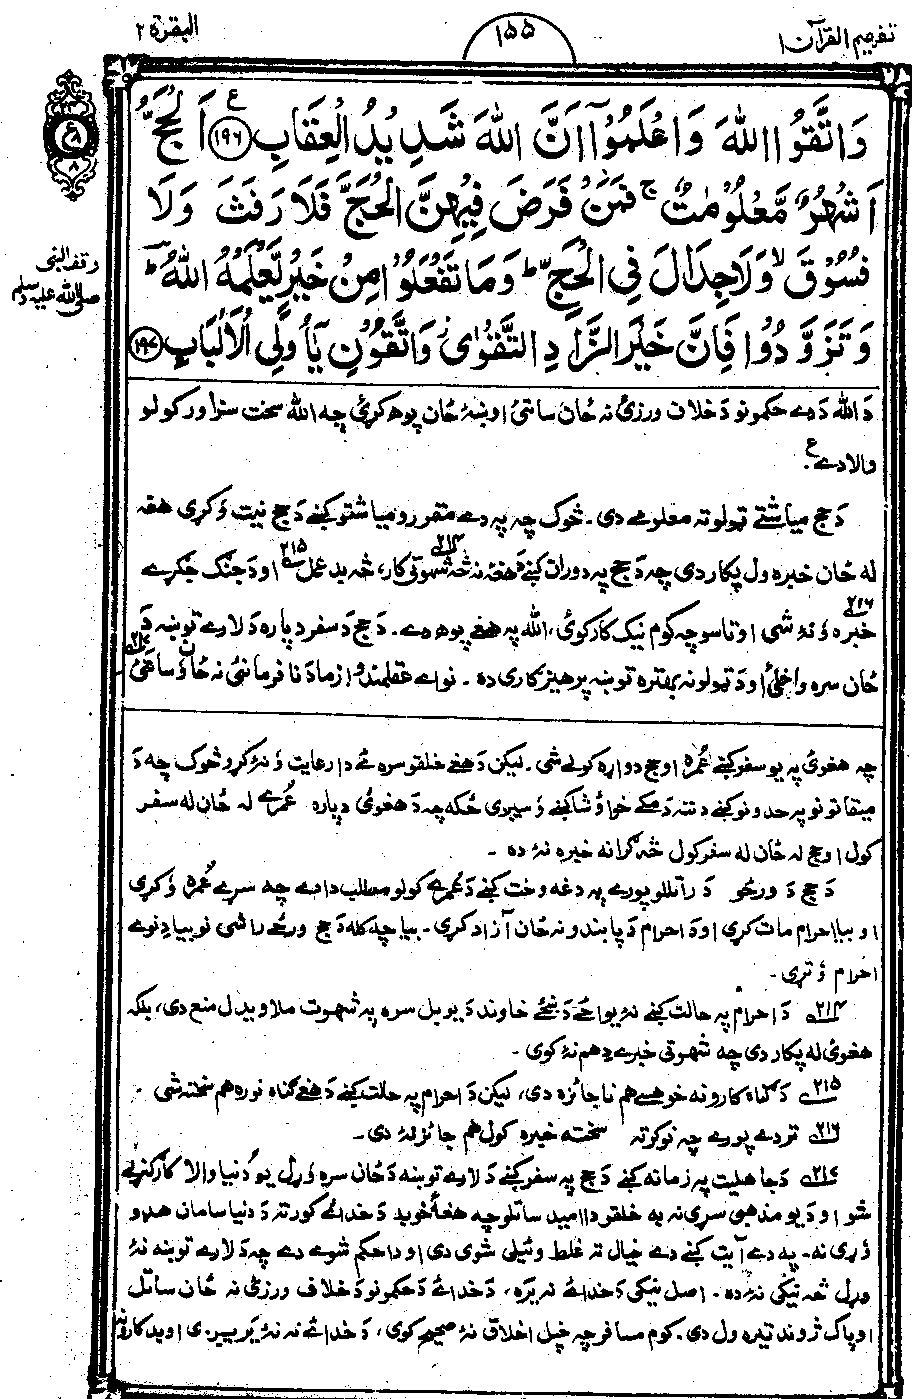 تفهيم القرآن ۱
۱۵۵
البقرة ۲
وَاتَّقُوا اللّٰهَ وَاعْلَمُوْٓا اَنَّ اللّٰهَ شَدِيْدُ الْعِقَابِ ﴿۱۹۶﴾ ع اَلْحَجُّ
اَشْهُرٌ مَّعْلُوْمٰتٌ ج فَمَنْ فَرَضَ فِيْهِنَّ الْحَجَّ فَلَا رَفَثَ وَلَا
فُسُوْقَ لا وَلَا جِدَالَ فِي الْحَجِّ ط وَمَا تَفْعَلُوْا مِنْ خَيْرٍ يَّعْلَمْهُ اللّٰهُ ط
وَتَزَوَّدُوْا فَاِنَّ خَيْرَ الزَّادِ التَّقْوٰى ز وَاتَّقُوْنِ يٰٓاُولِي الْاَلْبَابِ ﴿۱۹۷﴾
ع
۸
وقف النبي
صلى الله عليه وسلم
دَ الله دَ دے حکمونو دَ خلاف ورزئ نه ځان ساتئ او ښۀ ځان پوهه کړئ چه الله سخت سزا ورکولو
والا دے ع.
دَ حج میاشتے ټولو ته معلومے دی. څوک چه په دے مقررو میاشتو کښے دَ حج نیت وُ کړی هغه
له ځان خبره ول پکار دی چه دَ حج په دوران کښے دَ هغه نه څه شهوتی کار۲۱۴، څه بد عمل۲۱۵ او دَ جنګ جګړے
خبره۲۱۶ وُ نۀ شی او تاسو چه کوم نیک کار کوئ، الله په هغے پوهه دے. دَ حج دَ سفر دپاره دَ لارے توښه دَ
ځان سره واخلئ او دَ ټولو نه بهتره توښه پرهیزګاری ده۲۱۷. نو اے عقلمندو! زما دَ نافرمانئ نه ځان وُ ساتئ
چه هغوئ په یو سفر کښے عُمره او حج دواړه کولے شی. لیکن دَ هغے خلقو سره ئے دا رعایت وُ نۀ کړو څوک چه دَ
میقاتونو په حدونو کښے دننه دَ مکے خوا وُ شا کښے وُ سیږی ځکه چه دَ هغوئ دپاره عُمرے له ځان له سفر
کول او حج له ځان له سفر کول څه ګرانه خبره نۀ ده ـ
دَ حج دَ ورځو دَ راتللو پورے په دغه وخت کښے دَ عُمرے کولو مطلب دا دے چه سړے عُمره وُ کړی
او بیا احرام مات کړی او دَ احرام دَ پابندو نه ځان آزاد کړی ـ بیا چه کله دَ حج ورځے راشی نو بیا دِ نوے
احرام وُ تړی ـ
۲۱۴ دَ احرام په حالت کښے نۀ یواځے دَ ښځے خاوند دَ یو بل سره په شهوت ملاویدل منع دی، بلکه
هغوئ له پکار دی چه شهوتی خبرے دِ هم نۀ کوی ـ
۲۱۵ دَ ګناه کارونه خو هسے هم ناجائزه دی، لیکن دَ احرام په حالت کښے دَ هغے ګناه نوره هم سخته شی ـ
۲۱۶ تردے پورے چه نوکر ته سخته خبره کول هم جائز نۀ دی ـ
۲۱۷ دَ جاهلیت په زمانه کښے دَ حج په سفر کښے دَ لارے توښه دَ ځان سره وړل یو دُنیا والا کار ګنړلے
شو او دَ یو مذهبی سړی نه به خلقو دا اُمید ساتلو چه هغه به خوبد دَ خدائے کور ته دَ دنیا سامان هدو
وُ ړی نه ـ په دے آیت کښے دے خیال ته غلط وئیلی شوی دی او دا حکم شوے دے چه دَ لارے توښه نۀ
وړل څه نیکی نۀ ده ـ اصل نیکی دَ خدائے نه یره، دَ خدائے دَ حکمونو دَ خلاف ورزئ نه ځان ساتل
او پاک ژوند تیره ول دی ـ کوم مسافر چه خپل اخلاق نۀ صحیح کوی، دَ خدائے نه نۀ یریږی او بد کارونه